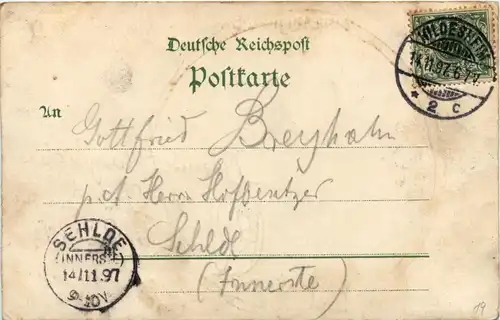 HILDESHEIM
14.11.97. 6-7 N.
* 2 c
Deutsche Reichspost
Postkarte
An
Gottfried Breyhahn
p. A. Herrn Hofbesitzer
Sehlde
(Innerste)
SEHLDE
(INNERSTE)
14/11.97
19